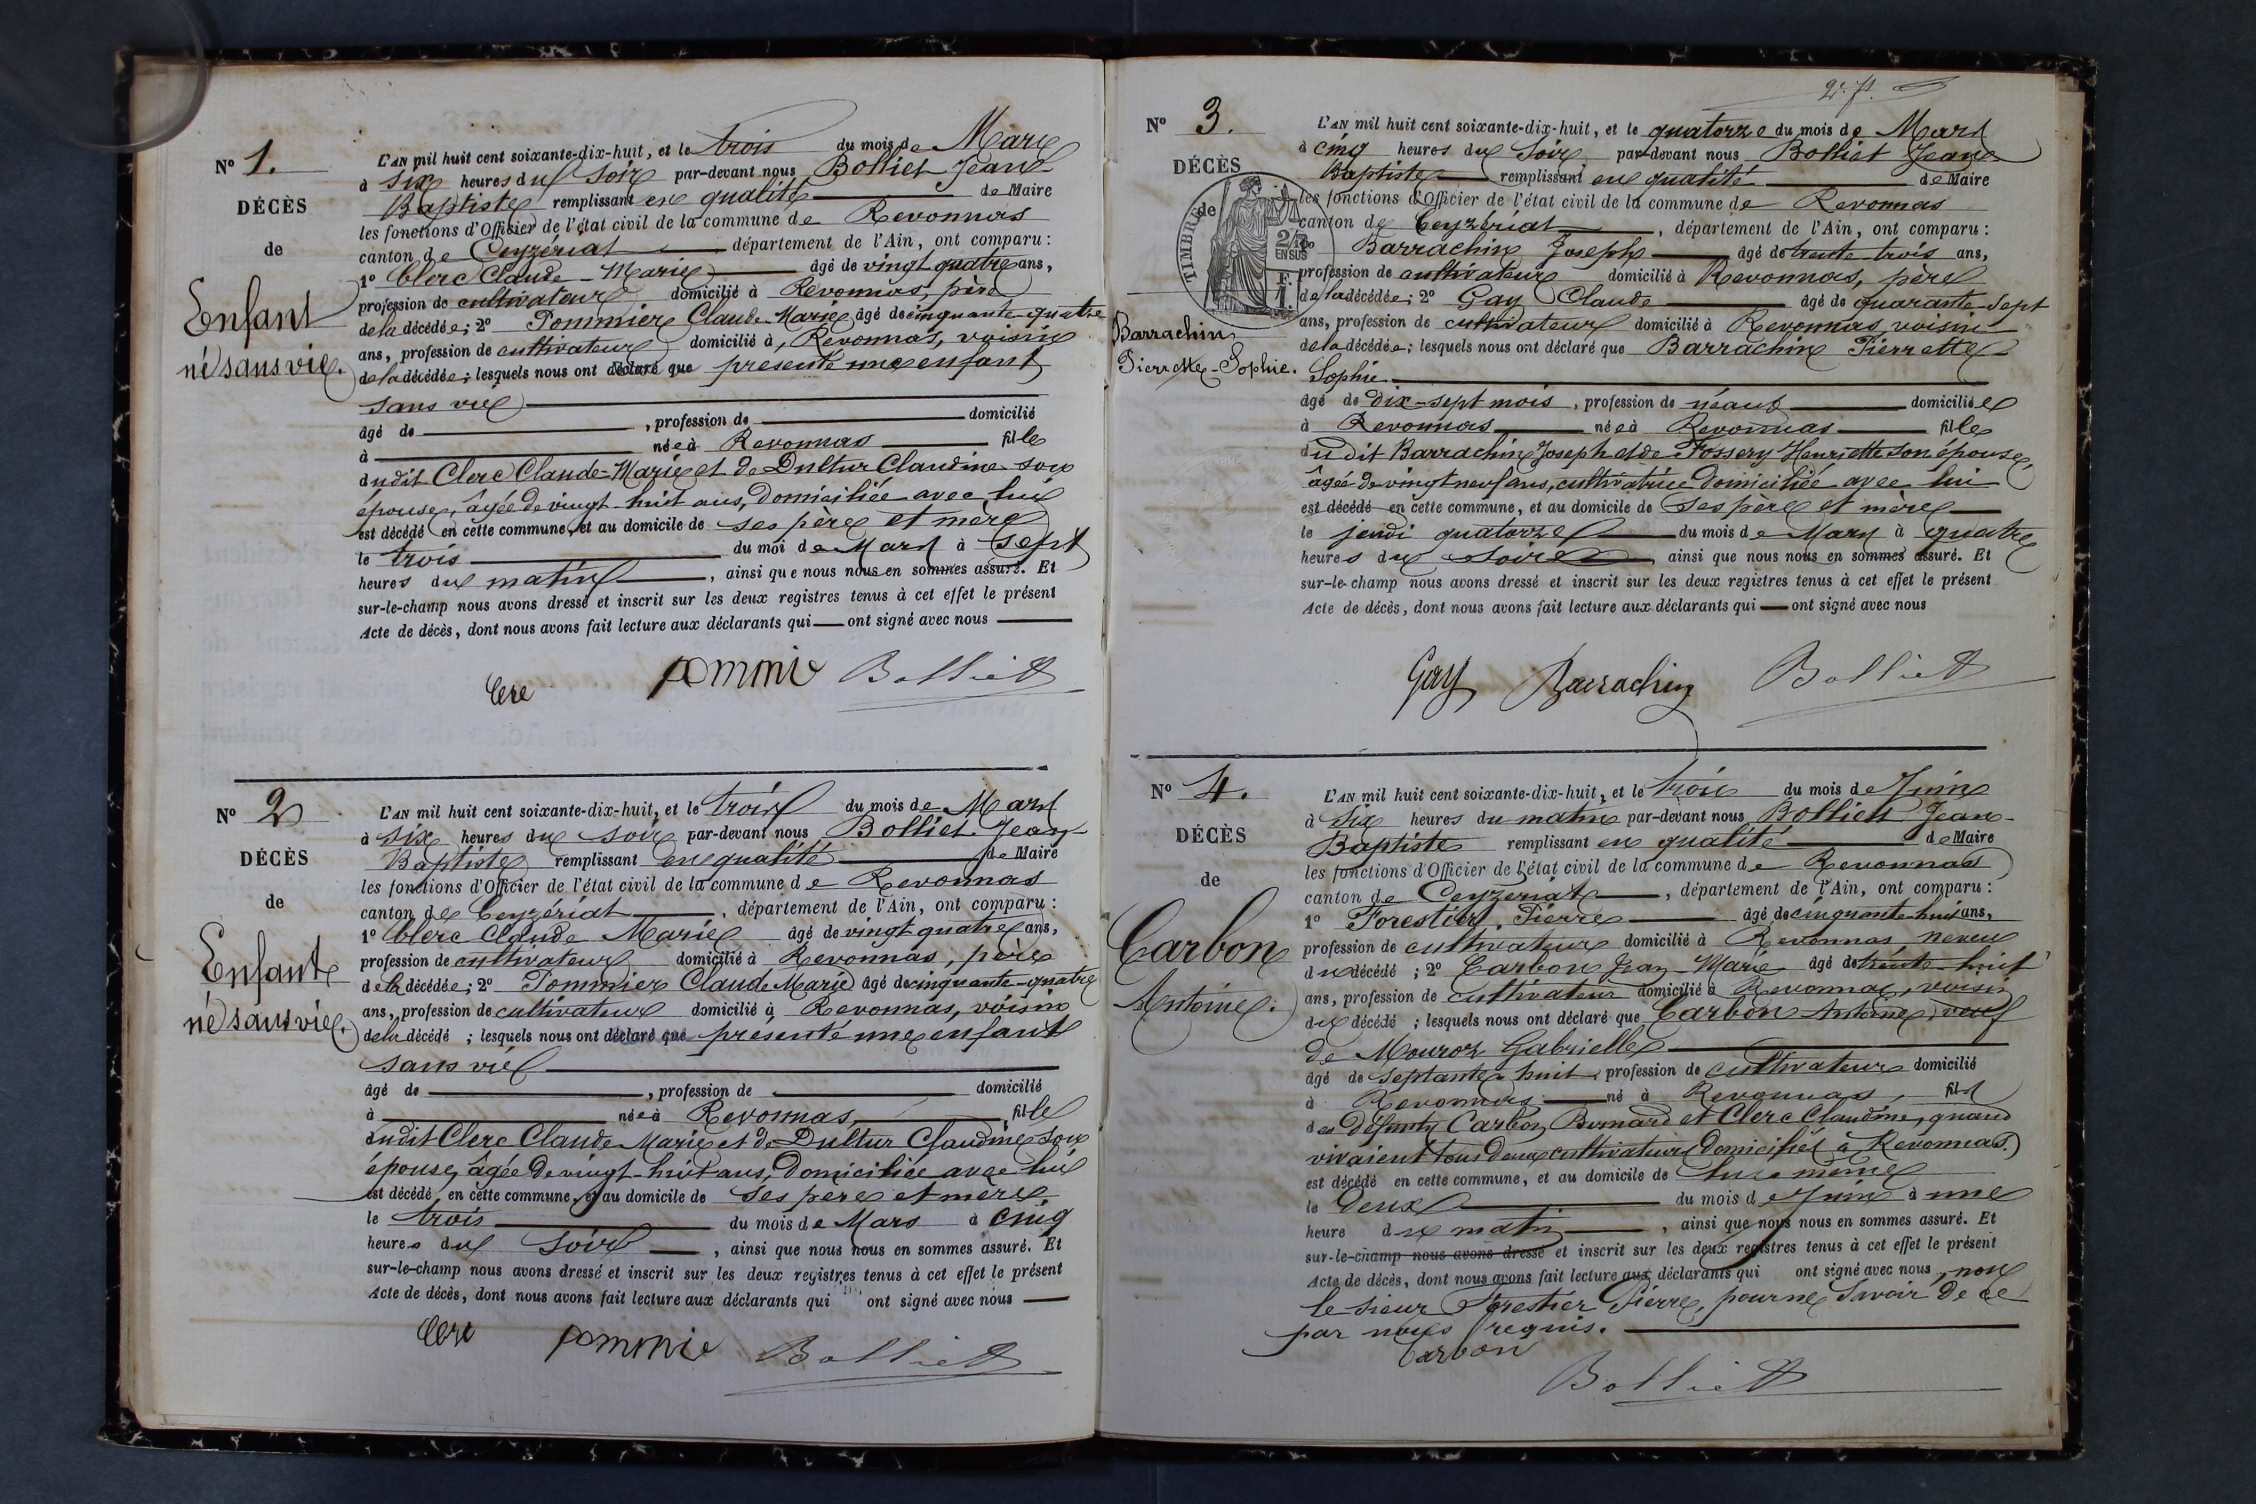 N° 1.
DÉCÈS
de
Enfant
né sans vie.
L'AN mil huit cent soixante-dix-huit, et le trois du mois de Mars
à six heures du soir par-devant nous Bolliet Jean
Baptiste remplissant en qualité de Maire
les fonctions d'Officier de l'état civil de la commune de Revonnas
canton de Ceyzériat département de l'Ain, ont comparu :
1° Clerc Claude-Marie âgé de vingt quatre ans,
profession de cultivateur domicilié à Revonnas, père
de la décédée; 2° Pommier Claude-Marie âgé de cinquante-quatre
ans, profession de cultivateur domicilié à Revonnas, voisin
de la décédée; lesquels nous ont déclaré que présenté une enfant
sans vie
âgé de , profession de domicilié
à née à Revonnas fille
dudit Clerc Claude-Marie et de Dultur Claudine son
épouse, âgée de vingt-huit ans, domiciliée avec lui
est décédé en cette commune, et au domicile de ses père et mère
le trois du moi de Mars à sept
heures du matin , ainsi que nous nous en sommes assuré. Et
sur-le-champ nous avons dressé et inscrit sur les deux registres tenus à cet effet le présent
Acte de décès, dont nous avons fait lecture aux déclarants qui ont signé avec nous
Clere pommie Bolliet
N° 2
DÉCÈS
de
Enfant
né sans vie.
L'AN mil huit cent soixante-dix-huit, et le trois du mois de Mars
à six heures du soir par-devant nous Bolliet Jean
Baptiste remplissant en qualité de Maire
les fonctions d'Officier de l'état civil de la commune de Revonnas
canton de Ceyzériat , département de l'Ain, ont comparu :
1° Clerc Claude Marie âgé de vingt quatre ans,
profession de cultivateur domicilié à Revonnas, père
de la décédée; 2° Pommier Claude Marie âgé de cinquante-quatre
ans, profession de cultivateur domicilié à Revonnas, voisin
de la décédé ; lesquels nous ont déclaré que présenté une enfant
sans vie
âgé de , profession de domicilié
à née à Revonnas, fille
dudit Clerc Claude Marie et de Dultur Claudine son
épouse, âgée de vingt-huit ans, domiciliée avec lui
est décédé en cette commune, et au domicile de ses père et mère.
le trois du mois de Mars à cinq
heures du soir , ainsi que nous nous en sommes assuré. Et
sur-le-champ nous avons dressé et inscrit sur les deux registres tenus à cet effet le présent
Acte de décès, dont nous avons fait lecture aux déclarants qui ont signé avec nous
Clere pommie Bolliet
N° 3.
DÉCÈS
de
TIMBRE
2/10 EN SUS
1 F.
Barrachin
Pierrette-Sophie.
L'AN mil huit cent soixante-dix-huit, et le quatorze du mois de Mars
à cinq heures du soir par-devant nous Bolliet Jean
Baptiste remplissant en qualité de Maire
les fonctions d'Officier de l'état civil de la commune de Revonnas
canton de Ceyzériat , département de l'Ain, ont comparu :
1° Barrachin Joseph âgé de trente trois ans,
profession de cultivateur domicilié à Revonnas, père
de la décédée; 2° Gay Claude âgé de quarante-sept
ans, profession de cultivateur domicilié à Revonnas, voisin
de la décédée; lesquels nous ont déclaré que Barrachin Pierrette
Sophie
âgé de dix-sept mois , profession de néant domiciliée
à Revonnas née à Revonnas fille
dudit Barrachin Joseph et de Fossery Henriette son épouse,
âgée de vingt neuf ans, cultivatrice domiciliée avec lui
est décédé en cette commune, et au domicile de ses père et mère
le jeudi quatorze du mois de Mars à quatre
heures du soir ainsi que nous nous en sommes assuré. Et
sur-le-champ nous avons dressé et inscrit sur les deux registres tenus à cet effet le présent
Acte de décès, dont nous avons fait lecture aux déclarants qui ont signé avec nous
Gay Barrachin Bolliet
N° 4.
DÉCÈS
de
Carbon
Antoine.
L'AN mil huit cent soixante-dix-huit, et le trois du mois de Juin
à six heures du matin par-devant nous Bolliet Jean-
Baptiste remplissant en qualité de Maire
les fonctions d'Officier de l'état civil de la commune de Revonnas
canton de Ceyzériat , département de l'Ain, ont comparu :
1° Forestier Pierre âgé de cinquante-huit ans,
profession de cultivateur domicilié à Revonnas, neveu
du décédé ; 2° Carbon Jean-Marie âgé de trente-huit
ans, profession de cultivateur domicilié à Revonnas, voisin
du décédé ; lesquels nous ont déclaré que Carbon Antoine, veuf
de Mouroz Gabrielle
âgé de septante huit, profession de cultivateur domicilié
à Revonnas né à Revonnas, fils
des défunts Carbon Bernard et Clerc Claudine, quand
vivaient tous deux cultivateurs domiciliés à Revonnas.
est décédé en cette commune, et au domicile de lui-même
le deux du mois de Juin à une
heure du matin , ainsi que nous nous en sommes assuré. Et
sur-le-champ nous avons dressé et inscrit sur les deux registres tenus à cet effet le présent
Acte de décès, dont nous avons fait lecture aux déclarants qui ont signé avec nous, non
le sieur Forestier Pierre, pour ne savoir de ce
par nous requis.
Carbon
Bolliet